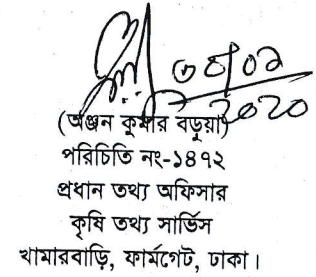 ২০২০
(অঞ্জন কুমার বড়ুয়া)
পরিচিতি নং-১৪৭২
প্রধান তথ্য অফিসার
কৃষি তথ্য সার্ভিস
খামারবাড়ি, ফার্মগেট, ঢাকা।